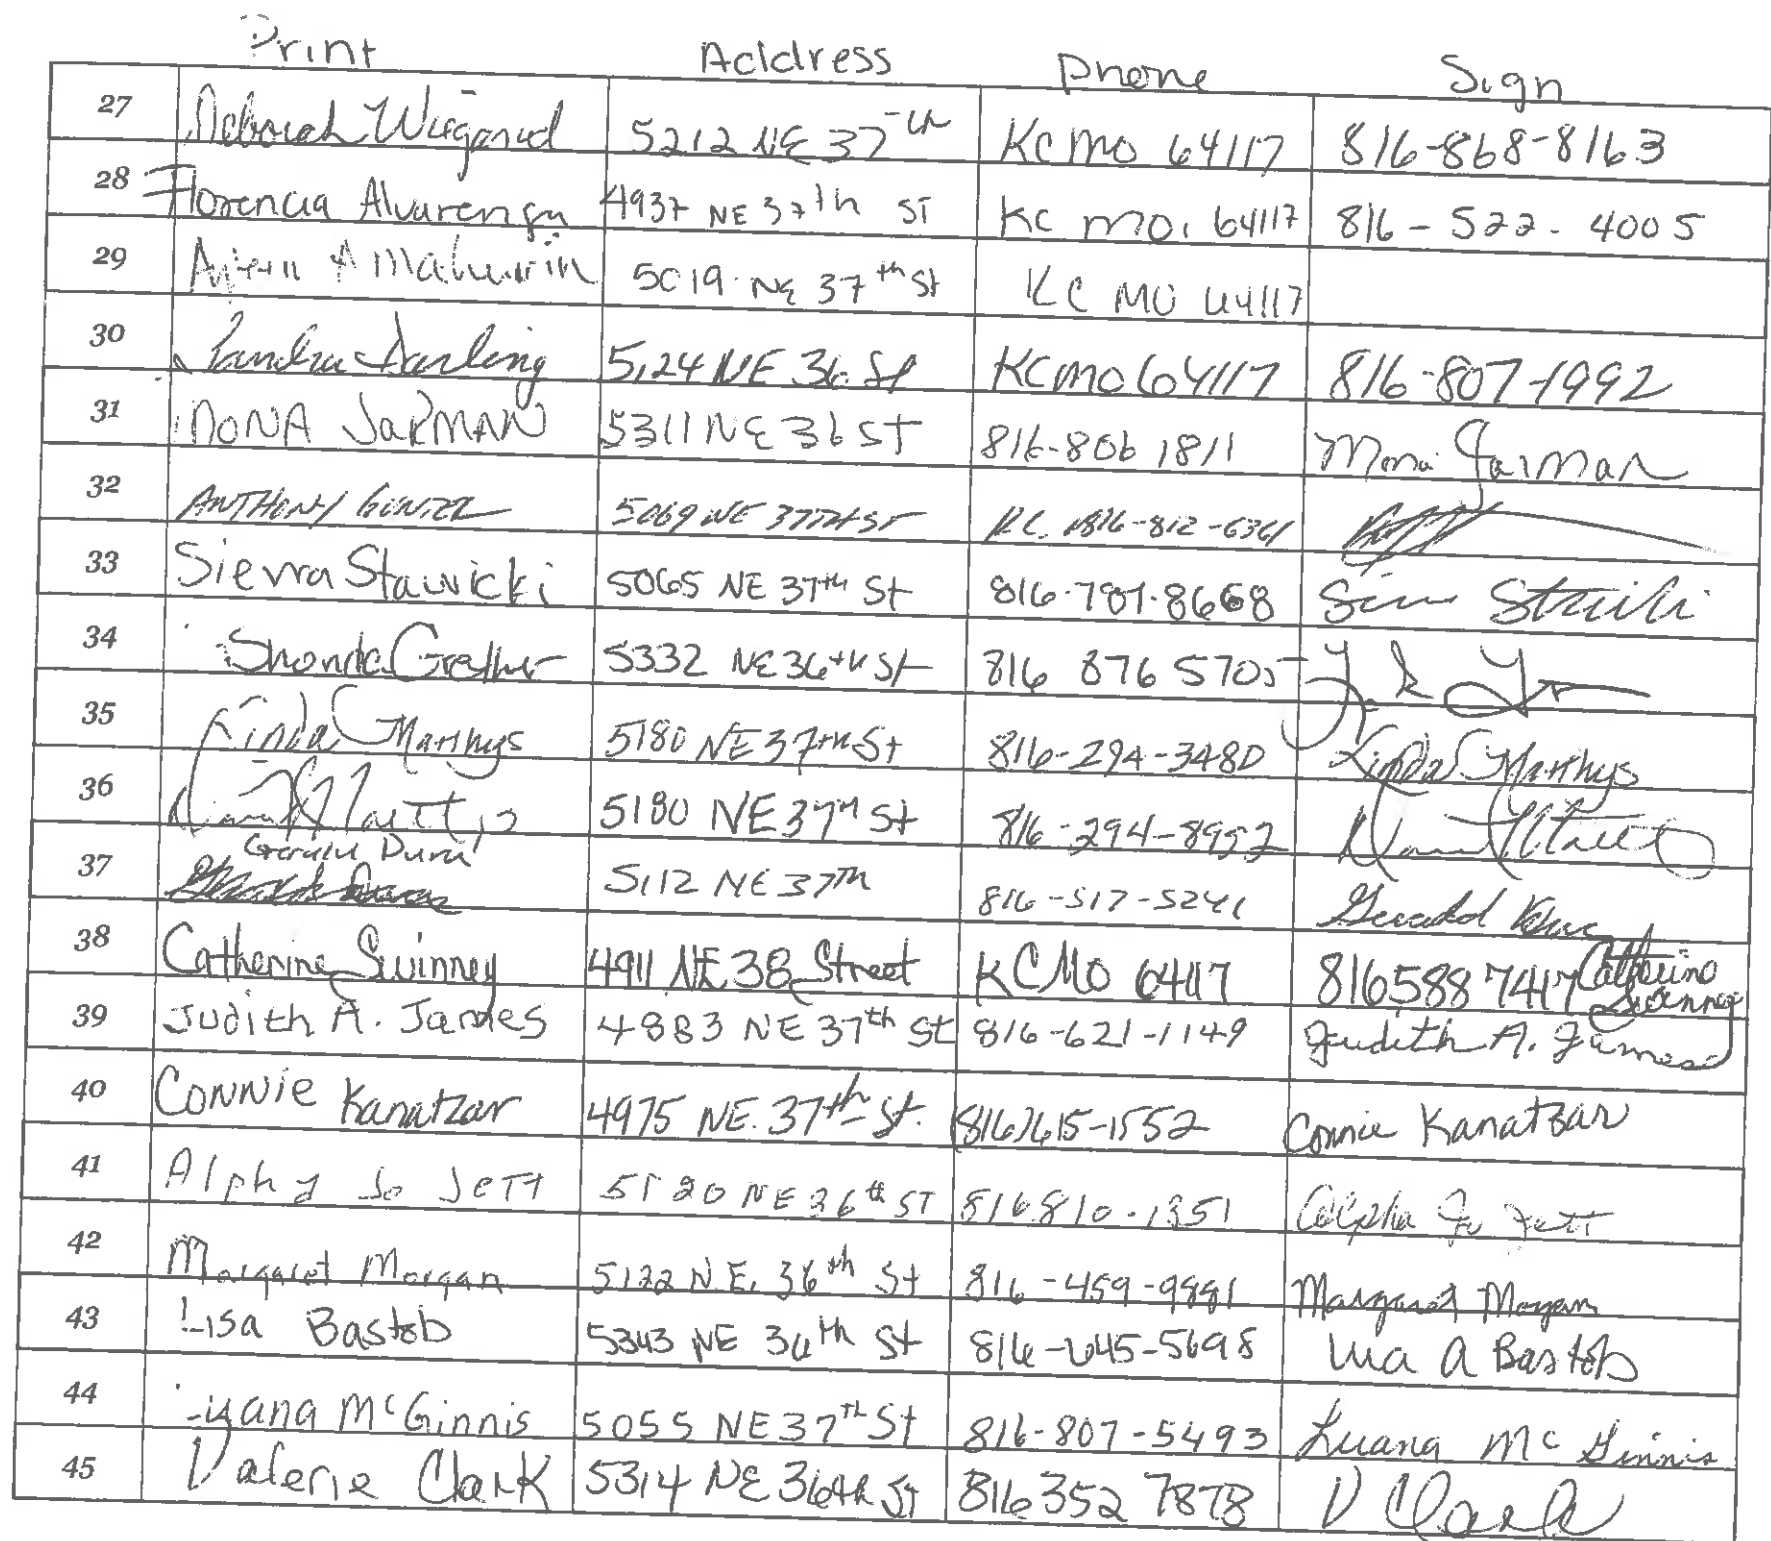 Print Address Phone Sign
27 Deborah Wiegand 5212 NE 37th KCMO 64117 816-868-8163
28 Florencia Alvarenga 4937 NE 37th ST KC MO. 64117 816-522-4005
29 5019 NE 37th St KC MO 64117
30 Sandra Darling 5124 NE 36 St KCMO 64117 816-807-1992
31 MONA JARMAN 5311 NE 36 ST 816-806 1811 Mona Jarman
32 ANTHONY 5069 NE 37TH ST KC. 816-812-6361
33 Sierra Stawicki 5065 NE 37th St 816-781-8668
34 Shonda 5332 NE 36th St 816 876 5705
35 Linda Matthys 5180 NE 37th St 816-294-3480 Linda Matthys
36 5180 NE 37th St 816-294-8952
37 Gerald 5112 NE 37th 816-517-5241 Gerald
38 Catherine Swinney 4911 NE 38 Street KCMO 64117 816 588 7417 Catherine Swinney
39 Judith A. James 4883 NE 37th St 816-621-1149 Judith A. James
40 Connie Kanatzar 4975 NE. 37th St. (816)615-1552 Connie Kanatzar
41 Alpha Jo Jett 5120 NE 36th ST 816 810-1351 Alpha Jo Jett
42 Margaret Morgan 5122 N.E. 36th St 816-459-9881 Margaret Morgan
43 Lisa Bastob 5343 NE 36th St 816-645-5698 Lisa A Bastob
44 Luana McGinnis 5055 NE 37th St 816-807-5493 Luana McGinnis
45 Valerie Clark 5314 NE 36th St 816 352 7878 V Clark